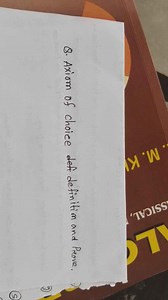 Q. Axiom of choice defi definition and Prove.
ALG
. M. K
SSICAL